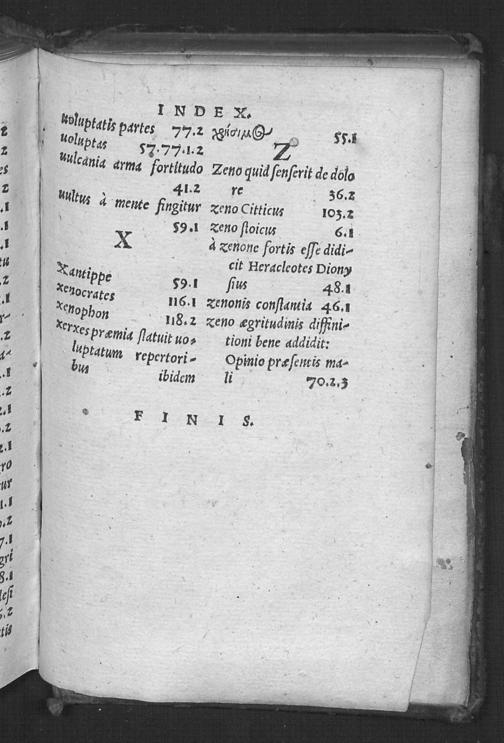 INDEX.
uoluptatis partes 77.2
uoluptas 57.77.1.2
uulcania arma fortitudo
41.2
uultus à mente fingitur
59.1
X
Xantippe 59.1
xenocrates 116.1
xenophon 118.2
xerxes præmia statuit uo-
luptatum repertori-
bus ibidem
χρήσιμος 55.1
Z
Zeno quid senserit de dolo
re 36.2
zeno Citticus 103.2
zeno stoicus 6.1
à zenone fortis esse didi-
cit Heracleotes Diony
sius 48.1
zenonis constantia 46.1
zeno ægritudinis diffini-
tioni bene addidit:
Opinio præsentis ma-
li 70.2.3
FINIS.
z
z
es
z
.1
.1
tu
.1
.z
.1
.2
.1
ro
ur
1.1
.2
7.1
gri
8.1
lesi
.2
tis